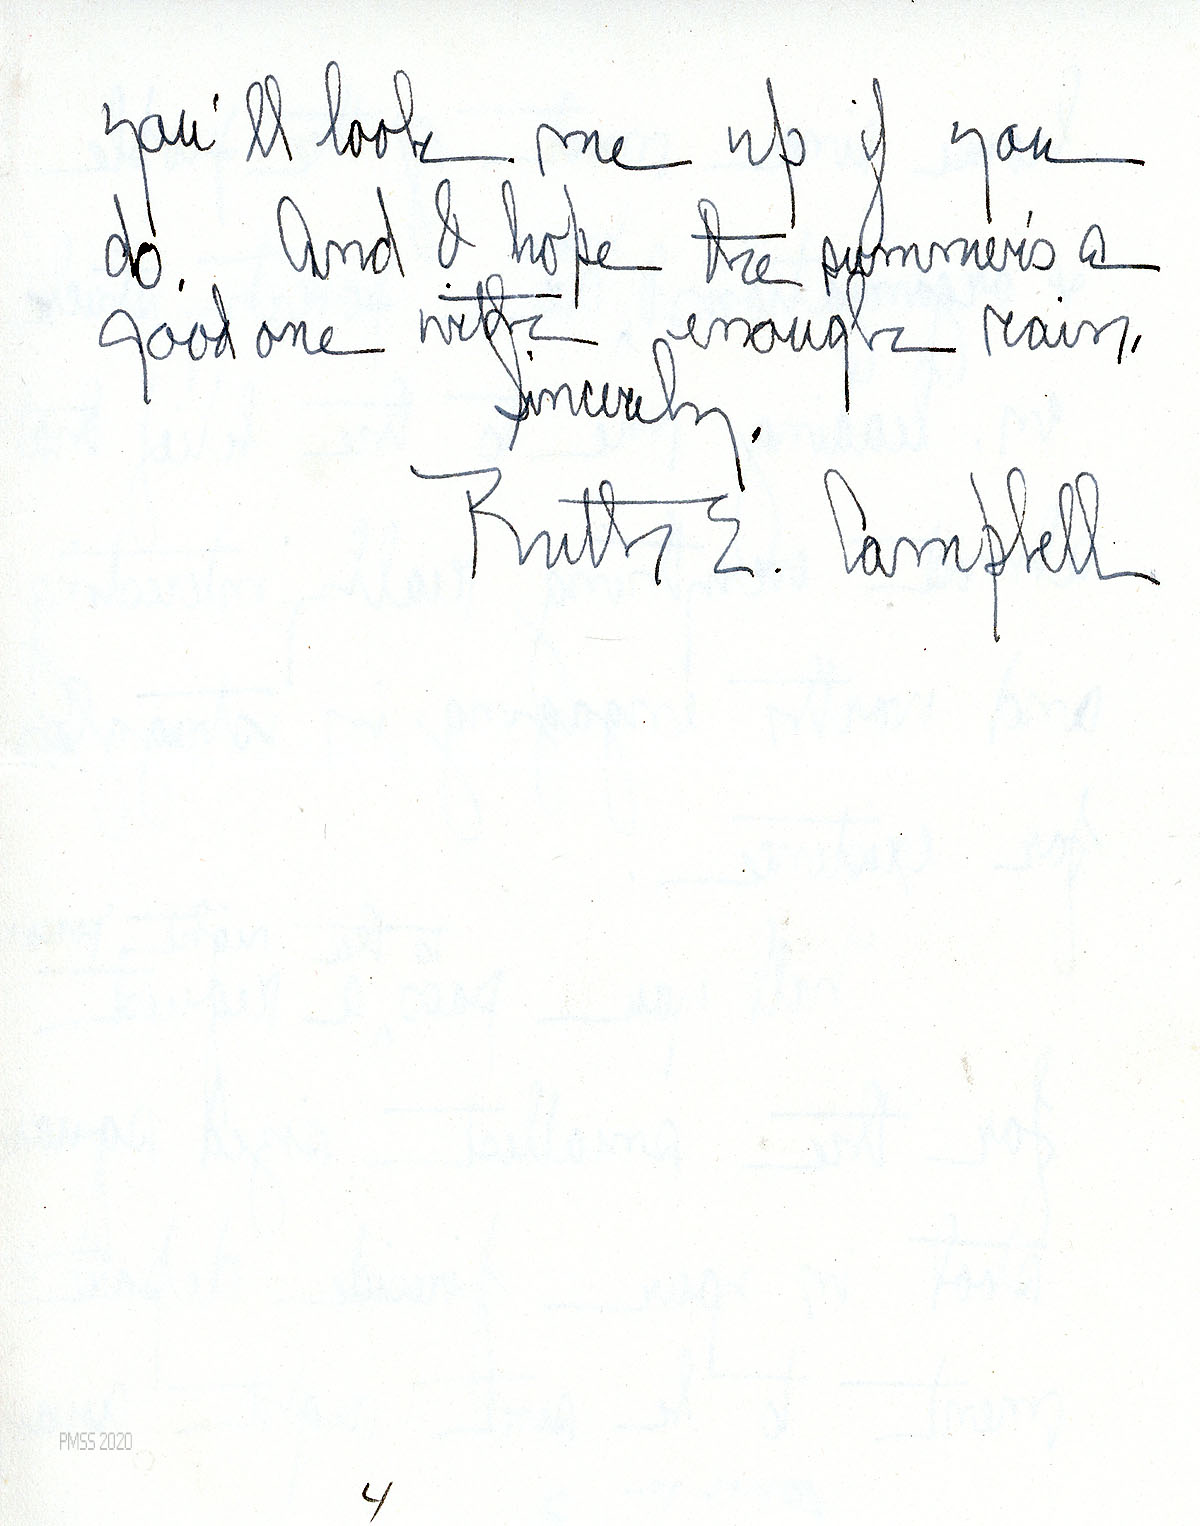 you'll look me up if you
do. And I hope the summer's a
good one with enough rain.
Sincerely,
Ruth E. Campbell
PMSS 2020
4